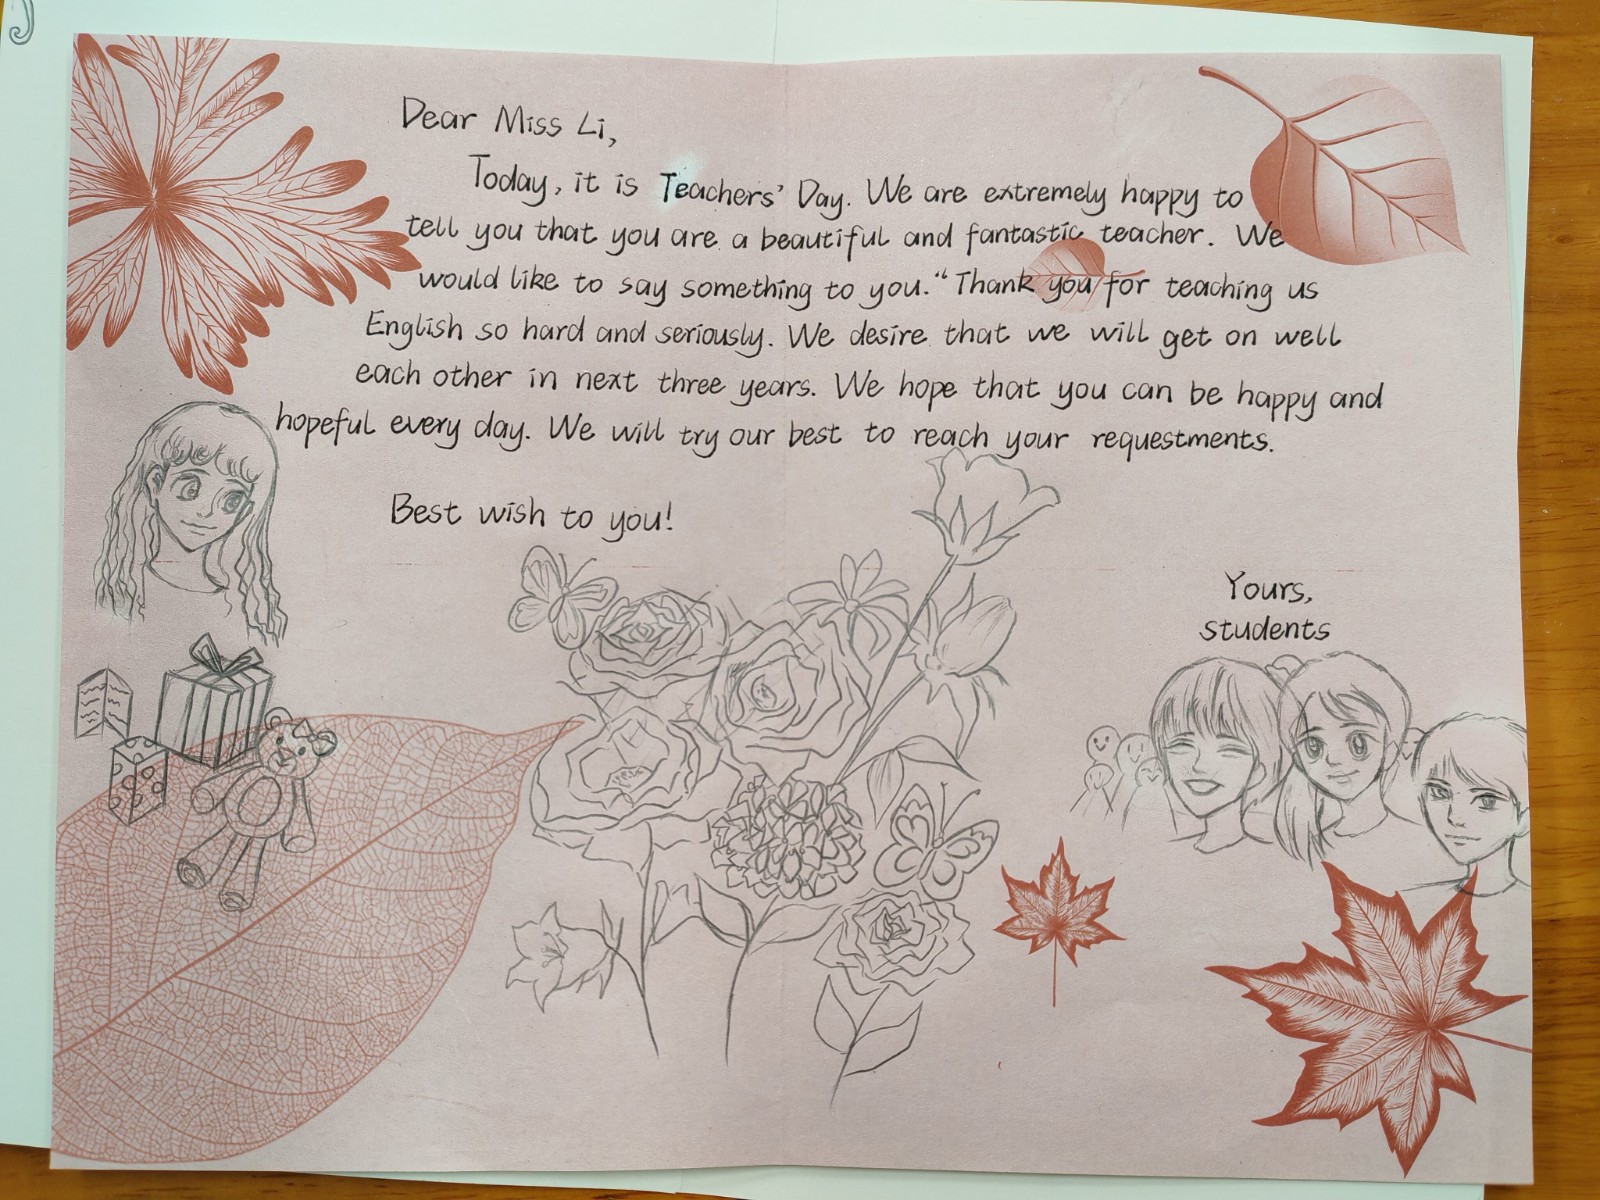 Dear Miss Li,
Today, it is Teachers' Day. We are extremely happy to
tell you that you are a beautiful and fantastic teacher. We
would like to say something to you. “Thank you for teaching us
English so hard and seriously. We desire that we will get on well
each other in next three years. We hope that you can be happy and
hopeful every day. We will try our best to reach your requestments.
Best wish to you!
Yours,
students